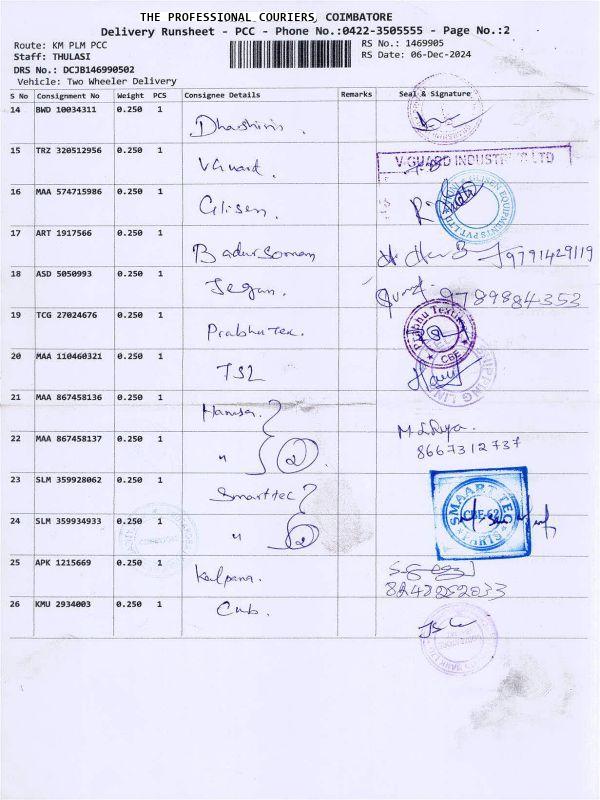 THE PROFESSIONAL COURIERS, COIMBATORE
Delivery Runsheet - PCC - Phone No.:0422-3505555 - Page No.:2
Route: KM PLM PCC
RS No.: 1469905
Staff: THULASI
RS Date: 06-Dec-2024
DRS No.: DCJB146990502
Vehicle: Two Wheeler Delivery
S No Consignment No Weight PCS Consignee Details Remarks Seal & Signature
14 BWD 10034311 0.250 1 Dharshinis.
15 TRZ 320512956 0.250 1 VGuard. V-GUARD LTD
16 MAA 574715986 0.250 1 Glisen.
17 ART 1917566 0.250 1 9791429119
18 ASD 5050993 0.250 1 Jegan. 9789984353
19 TCG 27024676 0.250 1 Prabhu Tex. Prabhu CBE
20 MAA 110460321 0.250 1 TSL
21 MAA 867458136 0.250 1 Hamsa.
22 MAA 867458137 0.250 1 " 2 8667312737
23 SLM 359928062 0.250 1 Smarttec
24 SLM 359934933 0.250 1 " 2 SMAART TEC CBE-62
25 APK 1215669 0.250 1 Kalpana.
26 KMU 2934003 0.250 1 Cub.